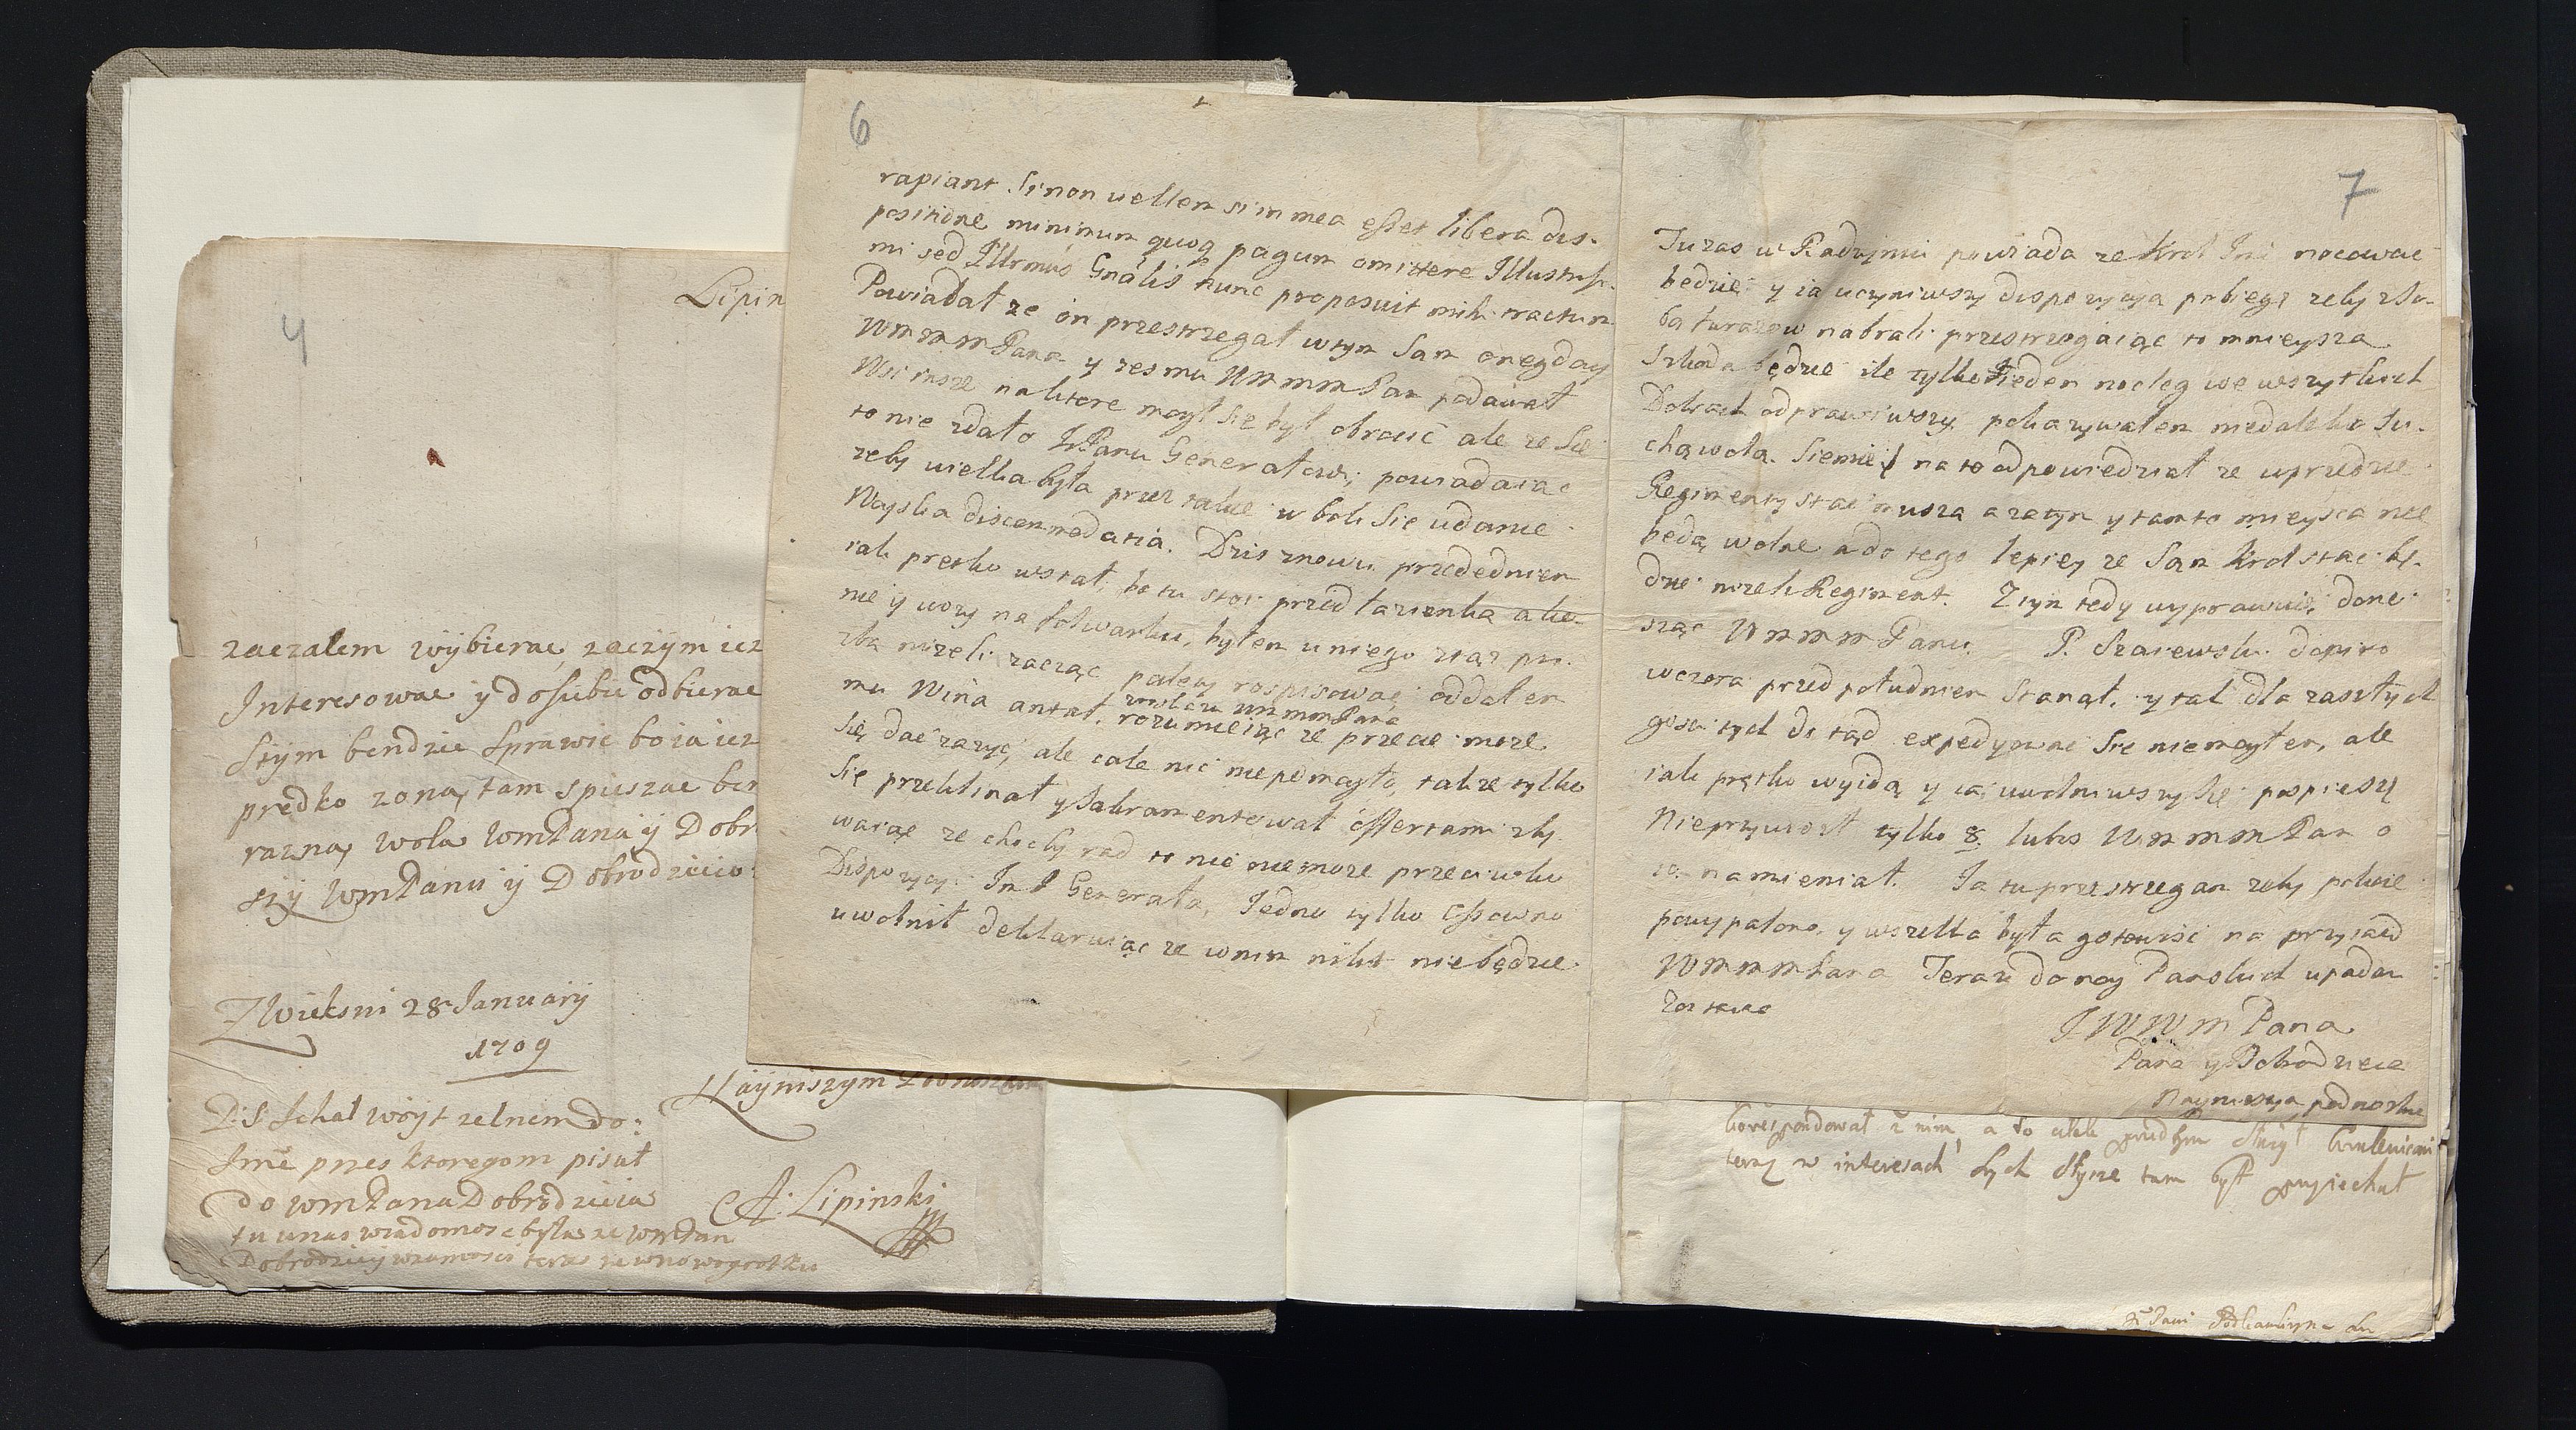 4
Lipin
zaczalem wybierac, zaczym iez
Interesowac y dosubie odbierac
stym bendzie sprawic bo ia iez
predko zona, tam spieszac ben
razna, wola WmPana y Dobr
szy WmPanu y Dobrodzieio
Z Wieksni 28 January
1709
P: S Ichal woyt zelnem do:
Jme przes ktoregom pisał
do WmPana Dobrodzieia
tu unas wiadomosc byla ze WmPan
Dobrodziey
Nayniszym Podnoszkom
A: Lipinski
6
rapiant. Si non wellem si in mea esset libera dis-
positione minimum quoq pagum omittere Illustriss-
mi sed Illrmus Gnalis hunc proposuit mihi tractum
Powiadał ze on przestrzegał wtym Sam onegday
WMMMPana y zesmu WMMMPan podawał
Wsi insze na ktore mogł się był obrocic ale ze się
to nie zdało JmPanu Generałowi, powiadaiąc
zeby wielka była przez takie w boki Sie udanie
Woyska discommodatia. Dzis znowu przededniem
iak prętko wstał, bo tu stoi przed łazienką a lu-
nie y wozy na folwarku, byłem uniego wiąz
zka nizeli zacząc palety rospisowac oddałem
mu Wina antał, imieniem WMMMPana rozumieiąc ze przecie moze
się dac zazyc, ale cale nic niepomogło, takze tylko
się przeklinał y Sakramentował offertami zby
waiąc ze chocby rad to nic niemoze przeciwko
Dispozycyi Jm P Generała, Jedno tylko Ossowno
uwolnił deklaruiąc ze wnim nikt niebędzie
7
Tu zas w Radzyniu powiada ze Krol Jmc nocowac
będzie, y ia uczyniwszy dispozycyą pobiegę zeby zso-
bą furazow nabrali przestrzegaiąc to mnieysza
szkoda będzie ile tylko Jeden nocleg we wszytkich
Dobrach odprawiwszy. pokazywałem niedaleko Su-
chąwolą. Siemień na to odpowiedział ze uprzednie
Regimenty stac musza a zatym y tamto mieysca nie
będą wolne a do tego lepiey ze Sam Krol stac bę-
dzie nizeli Regiment. Z tym tedy wyprawuię, dono
sząc WMMMPanu. P. Szaiewski dopiro
wczora przed południem Stanął, y tak dla zaszłych
gosci tych do tąd expedyowac się niemogłem, ale
iak prętko wyidą y ia uwolniwszy się pospieszę
Nieprzywiozł tylko 8. lubo WMMMPan o
10. namieniał. Ja tu przestrzegam zeby pokoie
powypalono, y wszelka była gotowosc na przyiazd
WMMMPana Teraz do nog Panskich upadam
Zostaiąc
J W W M Pana
Pana y Dobrodzieia
Nayniszym podnozkiem
korespondował z nim, a to
teraz w interesach tych słysze tam był przyiechał